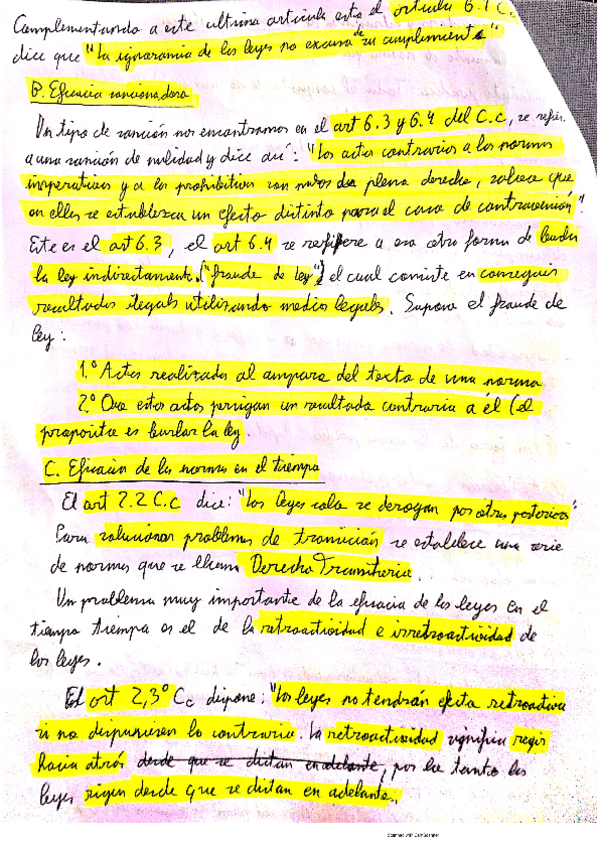 Complementando a este ultimo articulo esta el articulo 6.1 C.
dice que "La ignorancia de las leyes no excusa de su cumplimiento"
B. Eficacia sancionadora
Un tipo de sanción nos encontramos en el art 6.3 y 6.4 del C.c, se refier
a una sanción de nulidad y dice así: "Los actos contrarios a las normas
imperativas y a las prohibitivas son nulos de pleno derecho, salvo que
en ellas se establezca un efecto distinto para el caso de contravención".
Este es el art 6.3, el art 6.4 se refiere a esa otra forma de burlar
la ley indirectamente ("fraude de ley") el cual consiste en conseguir
resultados ilegales utilizando medios legales. Supone el fraude de
ley:
1.º Actos realizados al amparo del texto de una norma
2.º Que estos actos persigan un resultado contrario a él (el
proposito es burlar la ley.
C. Eficacia de las normas en el tiempo
El art 2.2 C.c dice: "Las leyes solo se derogan por otras posteriores"
Para solucionar problemas de transición se establece una serie
de normas que se llaman Derecho Transitorio.
Un problema muy importante de la eficacia de las leyes en el
tiempo tiempo es el de la retroactividad e irretroactividad de
las leyes.
El art 2,3º Cc dispone: "Las leyes no tendrán efecto retroactivo
si no dispusiesen lo contrario. La retroactividad significa regir
hacia atrás desde que se dictan en adelante, por lo tanto las
leyes rigen desde que se dictan en adelante.
Scanned with CamScanner